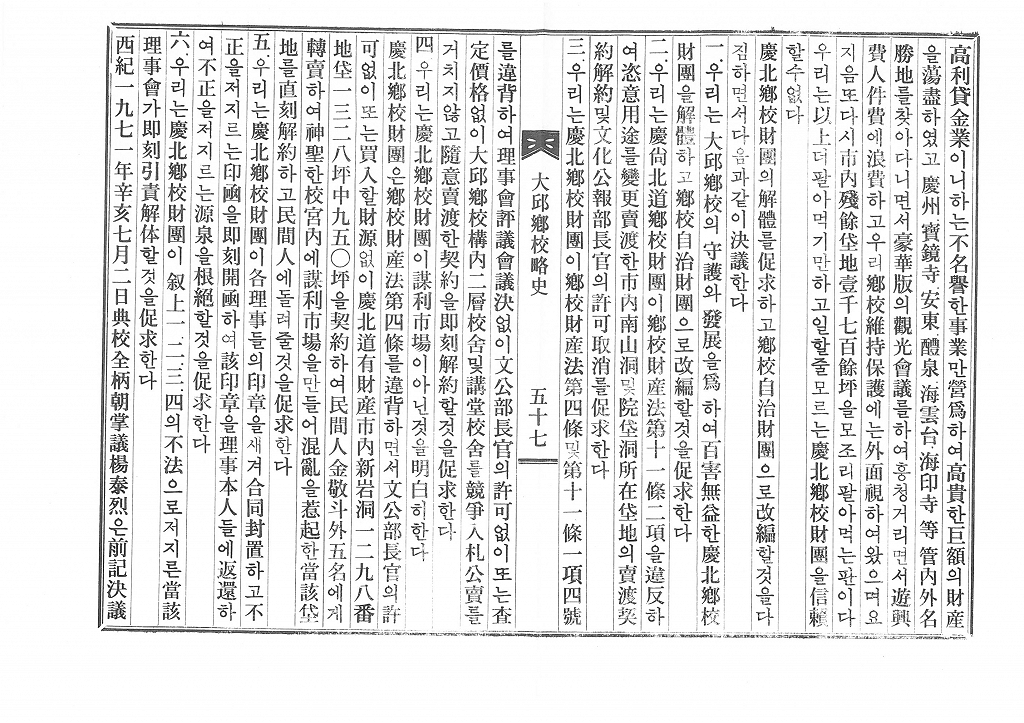 高利貸金業이니하는不名譽한事業만營爲하여高貴한巨額의財産
을蕩盡하였고 慶州 寶鏡寺 安東 醴泉 海雲台 海印寺 等 管內外名
勝地를찾아다니면서豪華版의觀光會議를하여흥청거리면서遊興
費人件費에浪費하고우리鄕校維持保護에는外面視하여왔으며요
지음또다시市內殘餘垈地壹千七百餘坪을모조리팔아먹는판이다
우리는以上더팔아먹기만하고일할줄모르는慶北鄕校財團을信賴
할수없다
慶北鄕校財團의解體를促求하고鄕校自治財團으로改編할것을다
짐하면서다음과같이決議한다
一、우리는 大邱鄕校의 守護와 發展을爲 하여百害無益한慶北鄕校
財團을解體하고鄕校自治財團으로改編할것을促求한다
二、우리는慶尙北道鄕校財團이鄕校財産法第十一條二項을違反하
여恣意用途를變更賣渡한市內南山洞및院垈洞所在垈地의賣渡契
約解約및文化公報部長官의許可取消를促求한다
三、우리는慶北鄕校財團이鄕校財産法第四條및第十一條一項四號
大邱鄕校略史 五十七
를違背하여理事會評議會議決없이文公部長官의許可없이또는査
定價格없이大邱鄕校構內二層校舍및講堂校舍를競爭入札公賣를
거치지않고隨意賣渡한契約을即刻解約할것을促求한다
四、우리는慶北鄕校財團이謀利市場이아닌것을明白히한다
慶北鄕校財團은鄕校財産法第四條를違背하면서文公部長官의許
可없이또는買入할財源없이慶北道有財産市內新岩洞一二九八番
地垈一三二八坪中九五〇坪을契約하여民間人金敬斗外五名에게
轉賣하여神聖한校宮內에謀利市場을만들어混亂을惹起한當該垈
地를直刻解約하고民間人에돌려줄것을促求한다
五、우리는慶北鄕校財團이各理事들의印章을새겨合同封置하고不
正을저지르는印凾을即刻開凾하여該印章을理事本人들에返還하
여不正을저지르는源泉을根絕할것을促求한다
六、우리는慶北鄕校財團이 叙上一、二、三、四의不法으로저지른當該
理事會가即刻引責解体할것을促求한다
西紀一九七一年辛亥七月二日典校全柄朝掌議楊泰烈은前記決議